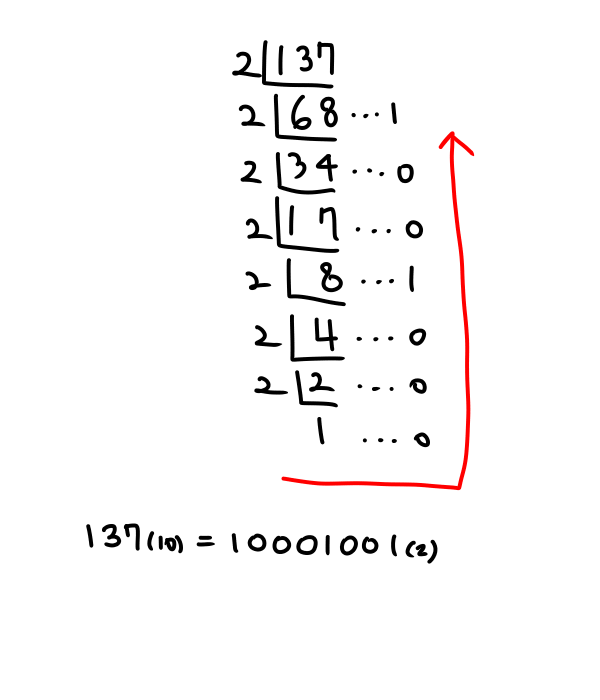 2 137
2 68 ... 1
2 34 ... 0
2 17 ... 0
2 8 ... 1
2 4 ... 0
2 2 ... 0
1 ... 0
137(10) = 10001001(2)